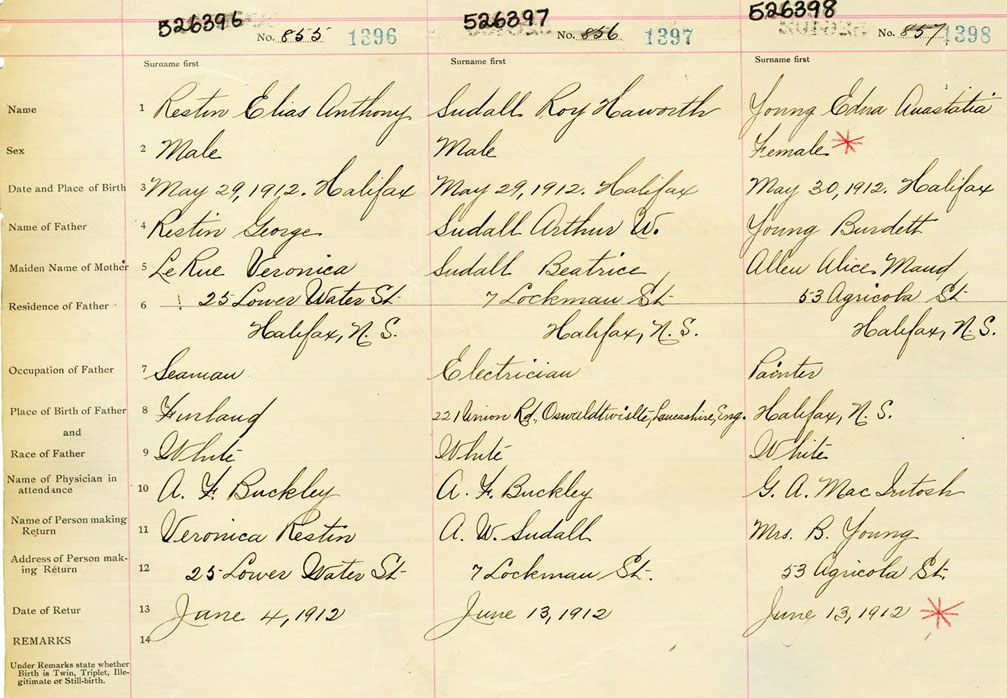 526396 526397 526398
No. 855 1396 No. 856 1397 No. 857 1398
Surname first Surname first Surname first
Name 1 Restin Elias Anthony Sudall Roy Haworth Young Edna Anastatia
Sex 2 Male Male Female *
Date and Place of Birth 3 May 29, 1912. Halifax May 29, 1912. Halifax May 30, 1912. Halifax
Name of Father 4 Restin George Sudall Arthur W. Young Burdett
Maiden Name of Mother 5 LeRue Veronica Sudall Beatrice Allen Alice Maud
Residence of Father 6 25 Lower Water St. 7 Lockman St. 53 Agricola St.
Halifax, N. S. Halifax, N. S. Halifax, N. S.
Occupation of Father 7 Seaman Electrician Painter
Place of Birth of Father 8 Finland 221 Union Rd., Oswaldtwistle, Lancashire, Eng. Halifax, N. S.
and
Race of Father 9 White White White
Name of Physician in
attendance 10 A. F. Buckley A. F. Buckley G. A. MacIntosh
Name of Person making
Return 11 Veronica Restin A. W. Sudall Mrs. B. Young
Address of Person mak-
ing Return 12 25 Lower Water St. 7 Lockman St. 53 Agricola St.
Date of Retur 13 June 4, 1912 June 13, 1912 June 13, 1912 *
REMARKS 14
Under Remarks state whether
Birth is Twin, Triplet, Ille-
gitimate or Still-birth.